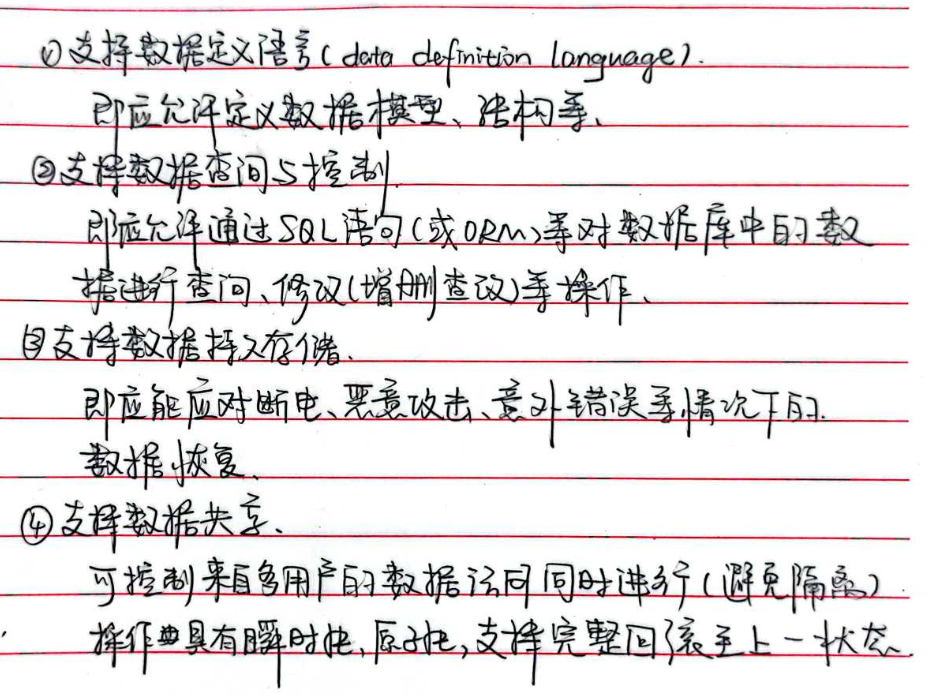 ①支持数据定义语言(data definition language).
即应允许定义数据模型、结构等、
②支持数据查询与控制.
即应允许通过SQL语句(或ORM)等对数据库中的数
据进行查询、修改(增删查改)等操作、
③支持数据持久存储.
即应能应对断电、恶意攻击、意外错误等情况下的.
数据恢复.
④支持数据共享、
可控制来自多用户的数据访问同时进行(避免隔离)
操作典具有瞬时性,原子性,支持完整回滚至上一状态.